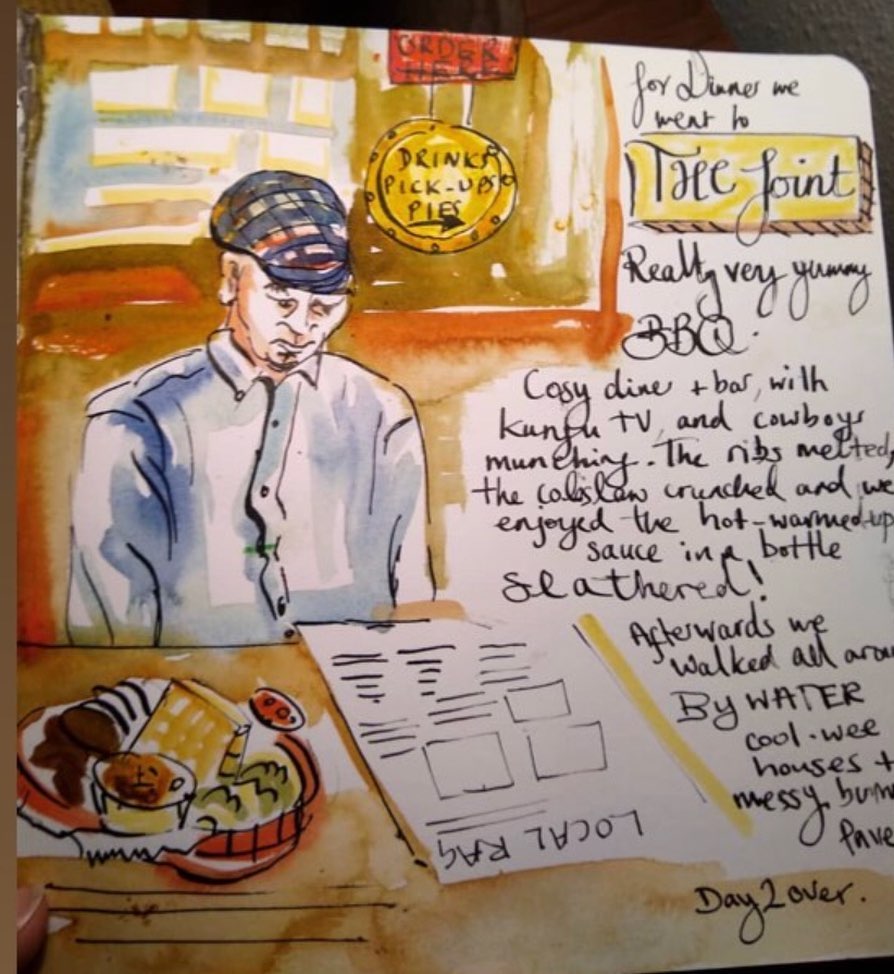 ORDER
HERE
DRINKS
PICK-UPS
PIES
for Dinner we
went to
THE Joint
Really very yummy
BBQ.
Cosy dine + bar, with
kungfu TV, and cowboys
munching. The ribs melted,
the colslaw crunched and we
enjoyed the hot-warmed-up
sauce in a bottle
Slathered!
Afterwards we
walked all arou
By WATER
cool-wee
houses +
messy bum
Pave
LOCAL RAG
Day 2 over.